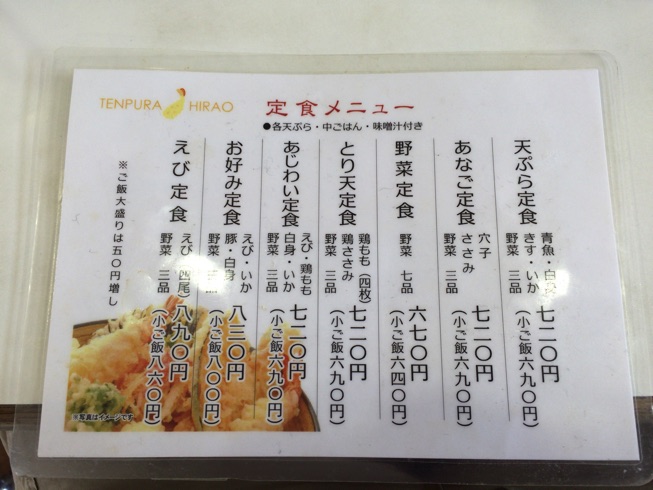 TENPURA HIRAO
定食メニュー
●各天ぷら・中ごはん・味噌汁付き
天ぷら定食
青魚・白身
きす・いか
野菜 三品
七二〇円
(小ご飯六九〇円)
あなご定食
穴子
ささみ
野菜 三品
七二〇円
(小ご飯六九〇円)
野菜定食
野菜 七品
六七〇円
(小ご飯六四〇円)
とり天定食
鶏もも(四枚)
鶏ささみ
野菜 三品
七二〇円
(小ご飯六九〇円)
あじわい定食
えび・鶏もも
白身・いか
野菜 三品
七二〇円
(小ご飯六九〇円)
お好み定食
えび・いか
豚・白身
野菜 三品
八三〇円
(小ご飯八〇〇円)
えび定食
えび(四尾)
野菜 三品
八九〇円
(小ご飯八六〇円)
※ご飯大盛りは五〇円増し
※写真はイメージです